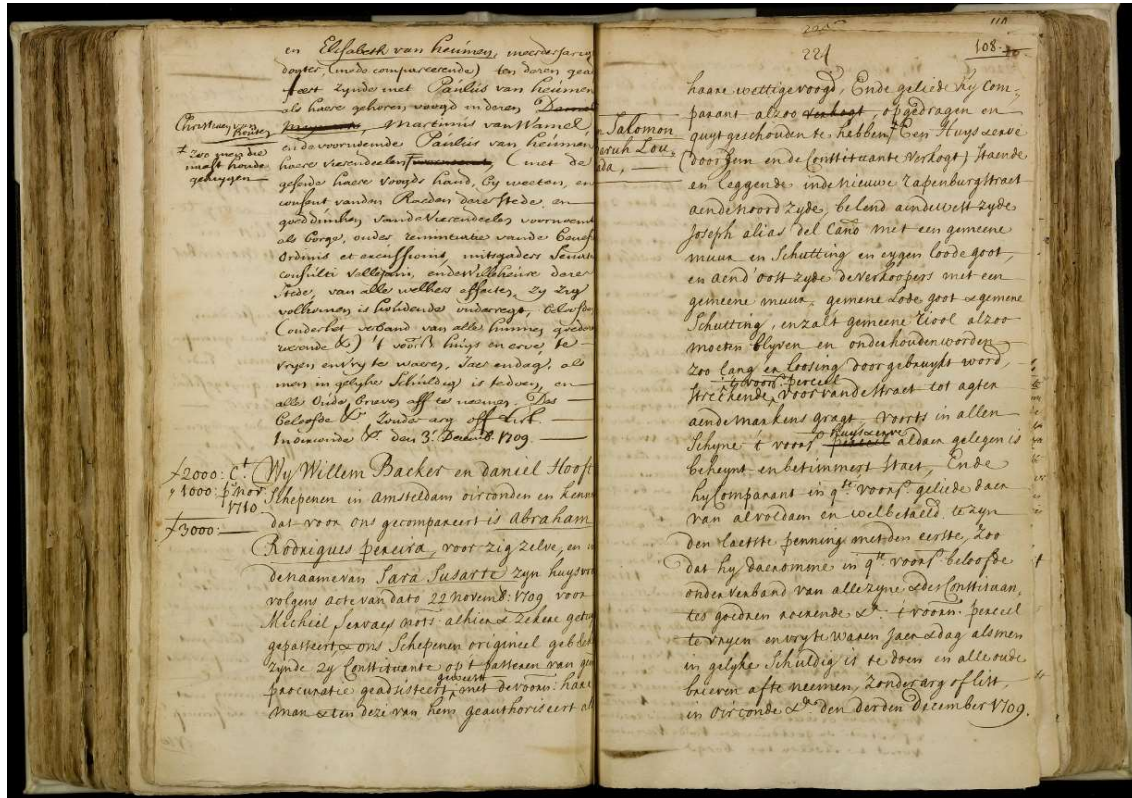 en Elisabeth van heumen, meerderjarig
dogter, (mede compareerende) ten deren gea
zynde met Paulus van heumen
als haere gekoren voogd in deren
Christiaen van
, Martinus van Wamel,
ende voornoemde Paulus van heumen
haere vierendeelen (met de
geseide haere voogds hand, by weeten, en
consent vanden Raeden dezer Stede, en
goeddunken vande vierendeelen voornoemt
als borge, onder renuntiatie vande benef
Ordinis et excussionis, mitsgaders Senatus
consulti vellejani, ende willekeure dezer
Stede, van alle welkers effecten, zy zig
volkomen is houdende onderregt, beloofde
(onder het verband van alle hunnen goeden
roerende &) 't voors. huijs en erve, te
vryen en vry te waeren, Jaer en dag, als
men in gelyke schuldig is te doen, en
alle oude brieven aff te neemen. Des
beloofde & zonder arg off List.
In oirconde & den 3. Decemb. 1709.
ƒ2000: Ct
" 1000: p. nov.
1710.
ƒ3000:
Wy Willem Backer en daniel Hooft
Schepenen in Amsteldam oirconden en kenn
dat voor ons gecompareert is Abraham
Rodrigues Pereira, voor zig zelve, en i
de naame van Sara Susarte zyn huysvr
volgens acte van dato 22 novemb: 1709 voor
Michiel Servaes nots: alhier & zekere getu
gepasseert & ons Schepenen origineel gebleke
zynde zy Constituante op 't passeren van ge
geweest
procuratie geadsisteert met de voorn: haar
man & ten deze van hem geauthoriseert al
221
108
haare wettige voogd, Ende geliede hy Com,
parant alzoo verkogt, opgedragen en
n Salomon
aruh Lou,
ada,
quyt geschouden te hebben Een Huys & erve
(door hem en de Constituante verkogt) Staende
en leggende inde Nieuwe Rapenburgstraet
aende Noord zyde, belend aende west zyde
Joseph alias del Cano met een gemeene
muur en Schutting en eygen loode goot,
en aend' oost zyde de verkoopers met een
gemeene muur, gemene Lode goot & gemene
Schutting, en zal 't gemeene Riool alzoo
moeten blyven en onderhouden worden
zoo lang er loosing door gebruykt word,
't voors. perceel
Streckende voor vande Straet tot agter
aende Markens gragt, voorts in allen
huys & erve
Schyne 't voors. perceel aldaer gelegen is
beheynt en betimmert Staet, Ende
hy Comparant in qte. voors. geliede daer
van al voldaen en wel betaeld te zyn
den laetste penning met den eerste, Zoo
dat hy daeromme in qte. voors. beloofde
onder verband van alle zyne & der Constituan,
tes goedren roerende &a. 't voorn. perceel
te vryen en vry te waren Jaer & dag als men
in gelyke Schuldig is te doen en alle oude
brieven af te neemen, Zonder arg of list,
in Oirconde &a. den derden december 1709.